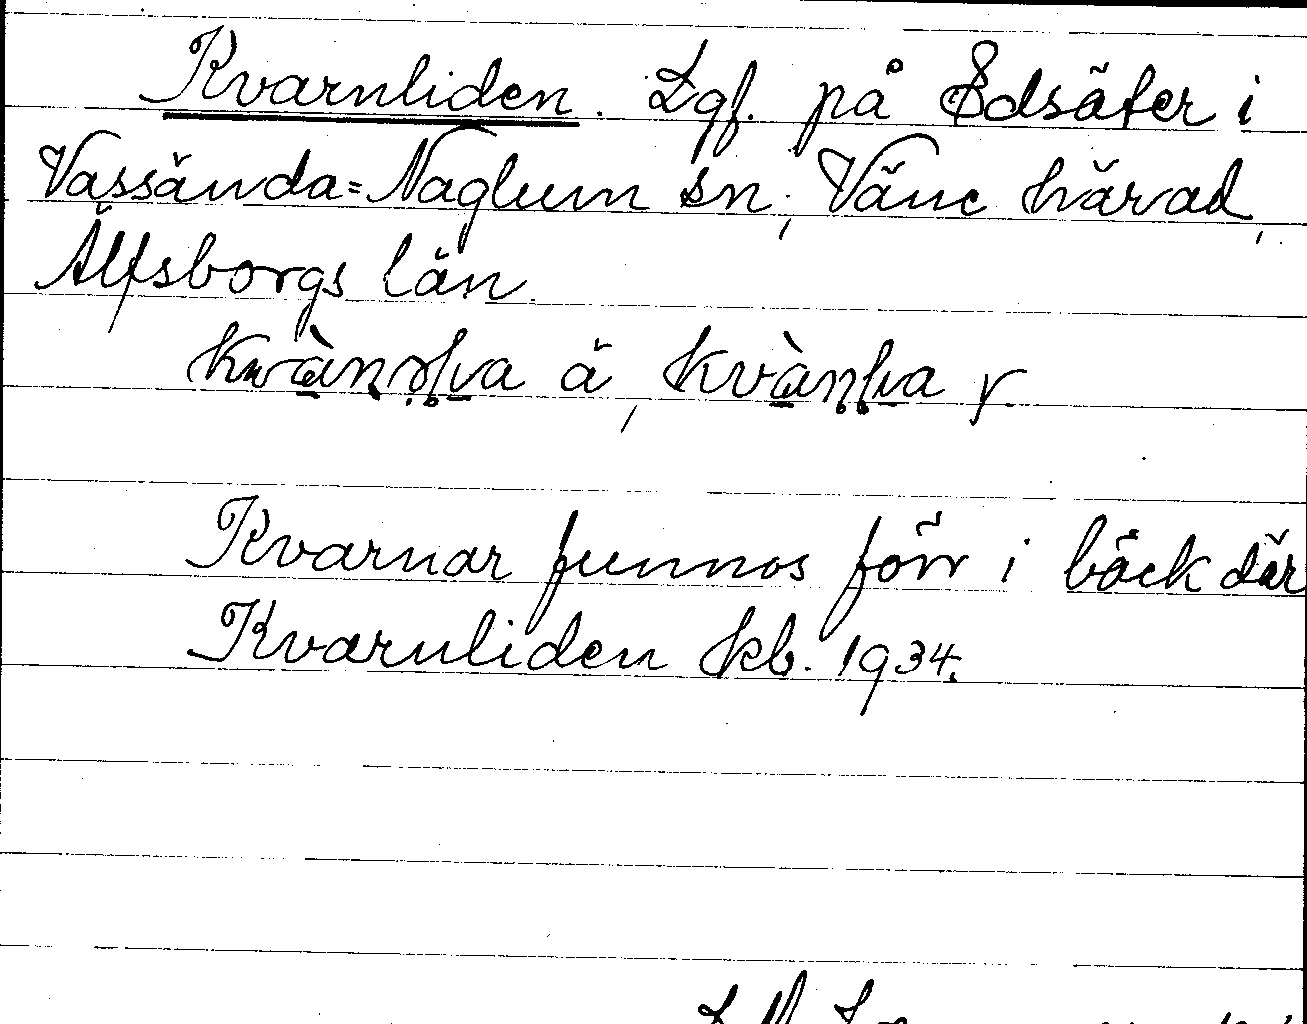 Kvarnliden. Lgf. på Edsäter i
Vassända=Naglum sn, Väne härad,
Älfsborgs län.
ä, y.
Kvarnar funnos förr i bäck där
Kvarnliden kb. 1934.